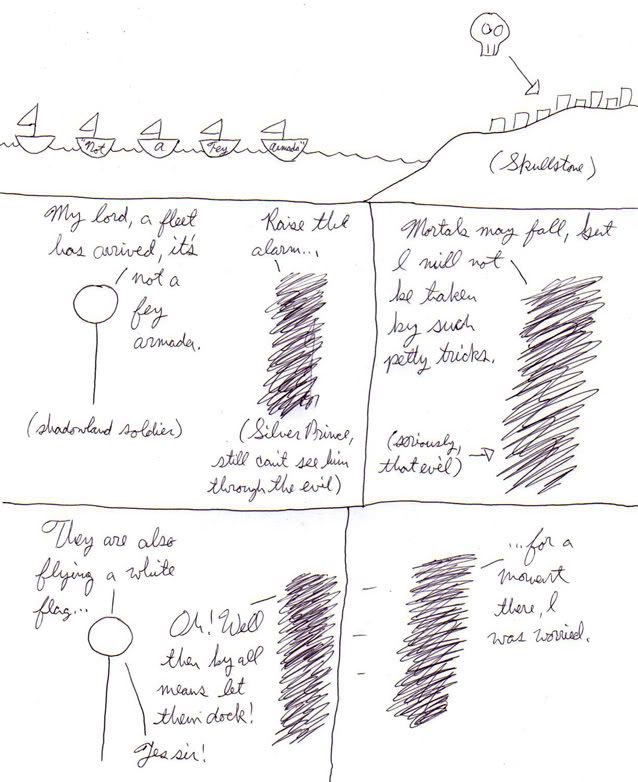 "Not
a
Fey
Armada"
(Skullstone)
My lord, a fleet
has arrived, it's
not a
fey
armada.
Raise the
alarm...
(shadowland soldier)
(Silver Prince,
still can't see him
through the evil)
Mortals may fall, but
I will not
be taken
by such
petty tricks.
(seriously,
that evil)
They are also
flying a white
flag...
Oh! Well
then by all
means let
them dock!
Yes sir!
...for a
moment
there, I
was worried.